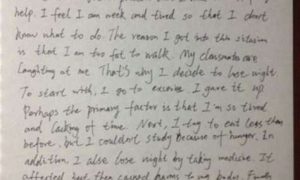 help. I feel I am weak and tired so that I don't
know what to do. The reason I got into this situation
is that I am too fat to walk. My classmates are
laughing at me. That's why I decide to lose weight.
To start with, I go to excise. I gave it up
Perhaps the primary factor is that I'm so tired
and lacking of time. Next, I try to eat less than
before, but I couldn't study because of hunger. In
addition, I also lose weight by taking medicine. It